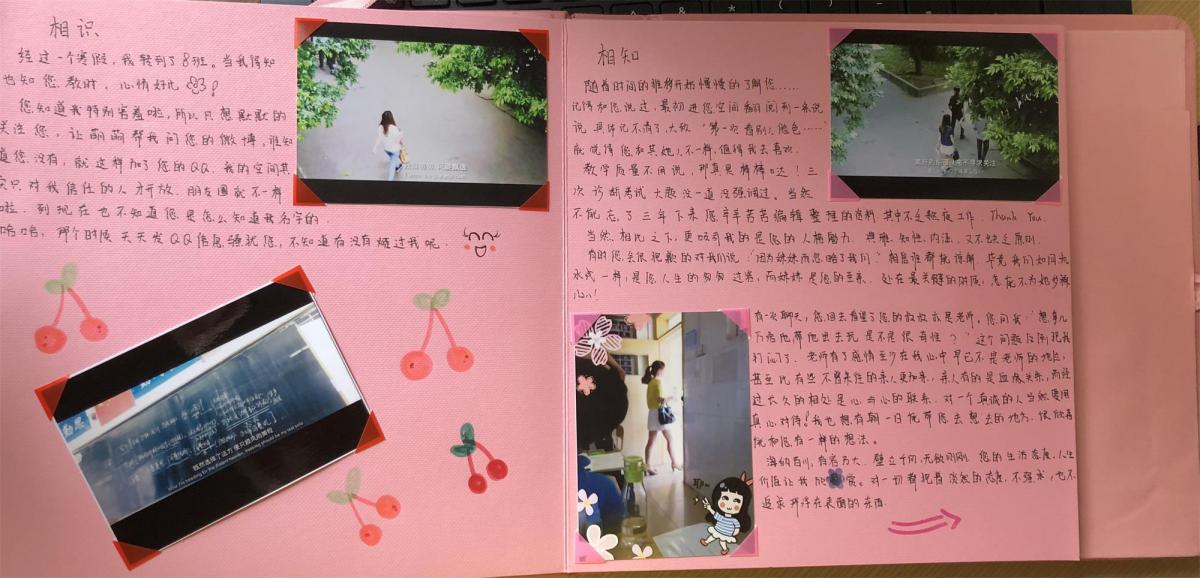 相识
经过一个寒假，我转到了8班。当我得知
也知您教时，心情好比
您知道我特别害羞啦，所以只想默默的
关注您，让萌萌帮我问您的微博，谁知
道您没有，就这样加了您的QQ。我的空间其
实只对我信任的人才开放。朋友圈就不一样
啦。到现在也不知道您是怎么知道我名字的。
哈哈，那个时候天天发QQ信息骚扰您，不知道有没有烦过我呢。
既然选择了远方 便只顾风雨兼程
相知
随着时间的推移开始慢慢的了解您……
记得和您说过，最初进您空间看到说
说 具体记不清了，大致“第一次看别人脸色……
就觉得您和其她人不一样，值得我去喜欢。
教学质量不用说，那真是棒棒哒！三
次诊断考试大题没一道没强调过。当然
不能忘了三年下来您辛辛苦苦编辑整理的资料，其中不乏熬夜工作。Thank You.
当然，相比之下，更吸引我的是您的人格魅力。典雅、知性、内涵、又不缺乏原则。
有时您会很抱歉的对我们说：“因为妹妹而忽略了我们”相信谁都能谅解 毕竟我们如同流
水线一样，是您人生的匆匆过客，而妹妹是您的至亲。处在最关键的时候，怎能不为她多操
心！
有一次聊天，您回去看望了您的教授或是老师。您问我：“想拿几
万元他带他出去玩 是不是很奇怪？”这个问题
我问了。老师有了感情至少在我心中早已不是老师的地位，
甚至比有些不曾来往的亲人更加亲，亲人有的是血缘关系，而经
过长久的相处是心与心的联系。对一个真诚的人当然要用
真心对待！我也想有朝一日能带您去想去的地方。很欣喜
能和您有一样的想法。
海纳百川，有容乃大。壁立千仞，无欲则刚。您的生活态度、人生
价值让我 赏。对一切都抱着淡然的态度，不强求，也不
追求浮在表面的东西。